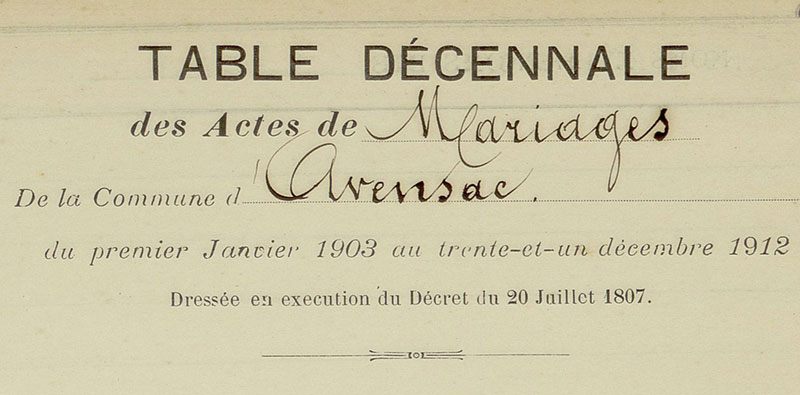 TABLE DÉCENNALE
des Actes de Mariages
De la Commune d'Avensac.
du premier Janvier 1903 au trente-et-un décembre 1912
Dressée en execution du Décret du 20 Juillet 1807.